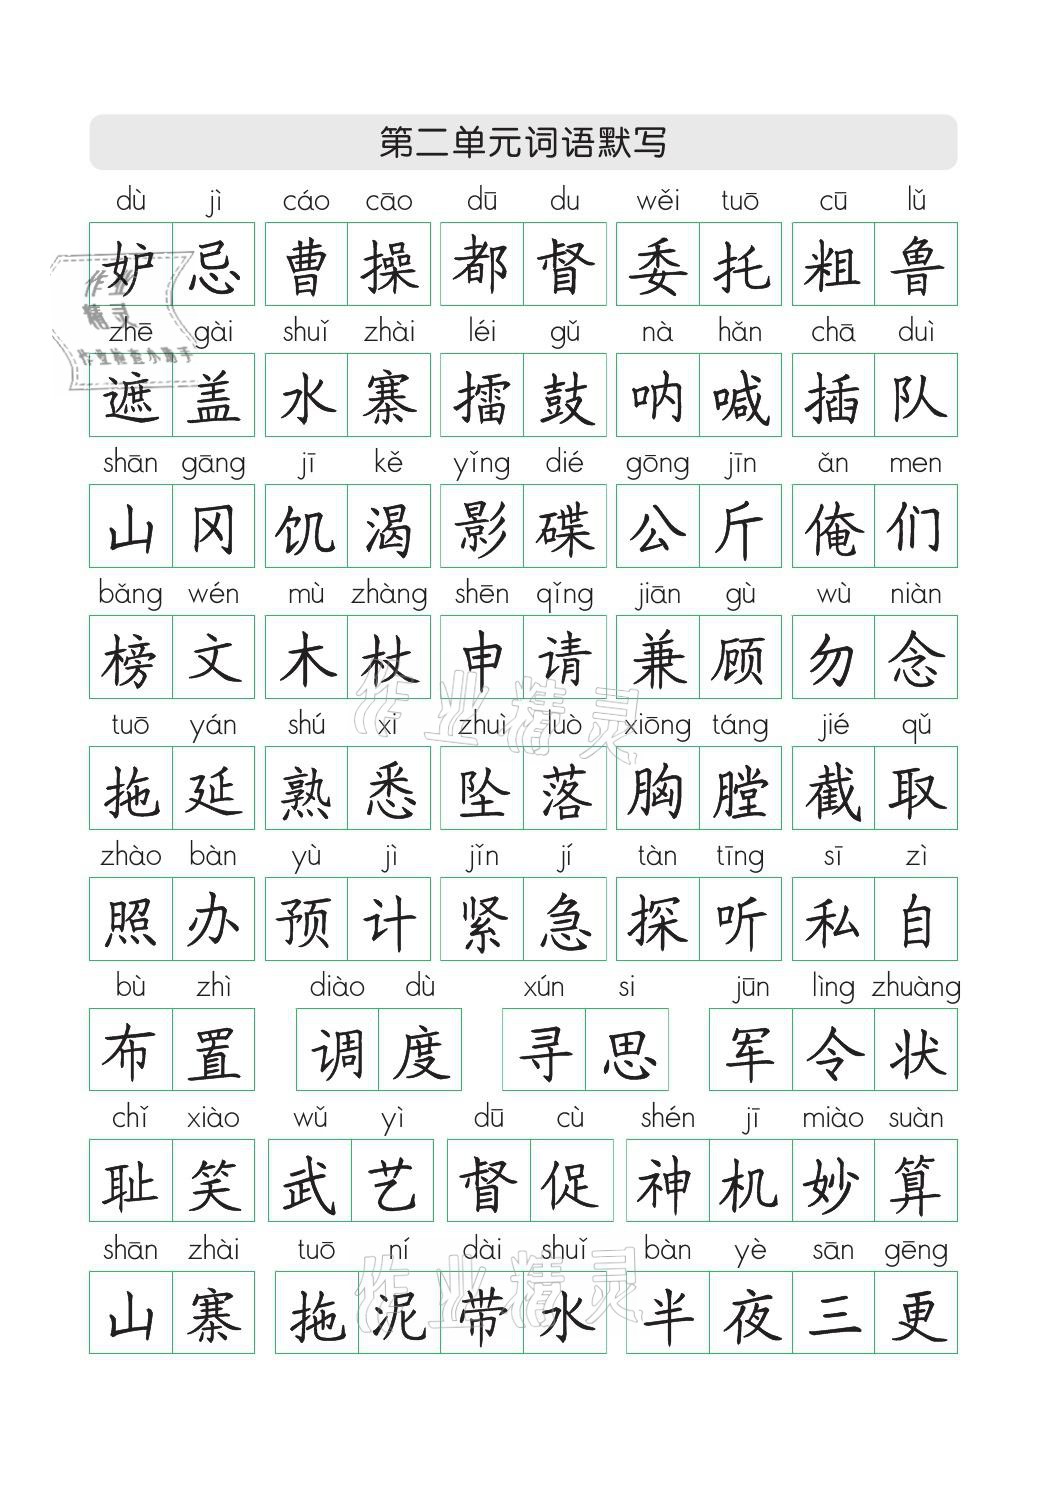 第二单元词语默写
dù jì cáo cāo dū du wěi tuō cū lǔ
妒忌 曹操 都督 委托 粗鲁
zhē gài shuǐ zhài léi gǔ nà hǎn chā duì
遮盖 水寨 擂鼓 呐喊 插队
shān gāng jī kě yǐng dié gōng jīn ǎn men
山冈 饥渴 影碟 公斤 俺们
bǎng wén mù zhàng shēn qǐng jiān gù wù niàn
榜文 木杖 申请 兼顾 勿念
tuō yán shú xi zhuì luò xiōng táng jié qǔ
拖延 熟悉 坠落 胸膛 截取
zhào bàn yù jì jǐn jí tàn tīng sī zì
照办 预计 紧急 探听 私自
bù zhì diào dù xún si jūn lìng zhuàng
布置 调度 寻思 军令状
chǐ xiào wǔ yì dū cù shén jī miào suàn
耻笑 武艺 督促 神机妙算
shān zhài tuō ní dài shuǐ bàn yè sān gēng
山寨 拖泥带水 半夜三更
作业
精灵
作业检查小助手
作业精灵
作业精灵